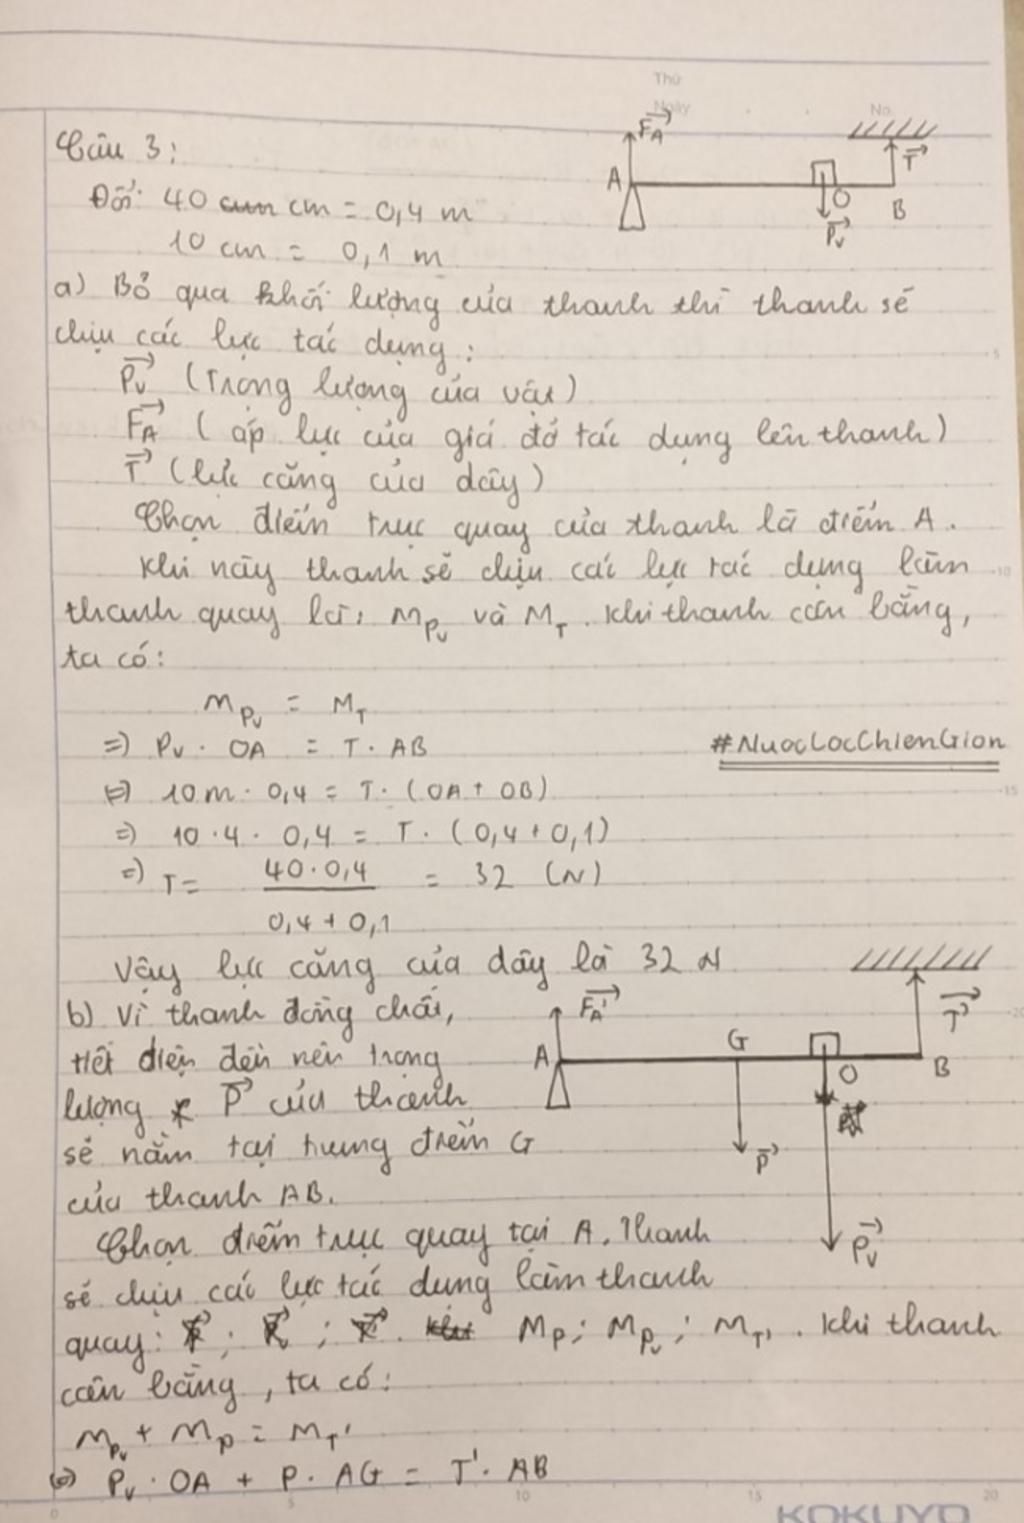 Thứ
Ngày
No.
Câu 3:
Đổi: 40 cm = 0,4 m
10 cm = 0,1 m
F_A
A
O
B
T
P_v
a) Bỏ qua khối lượng của thanh thì thanh sẽ
chịu các lực tác dụng:
P_v (Trọng lượng của vật)
F_A (áp lực của giá đỡ tác dụng lên thanh)
T (lực căng của dây)
Chọn điểm trục quay của thanh là điểm A.
Khi này thanh sẽ chịu các lực tác dụng làm
thanh quay là: M_Pv và M_T. Khi thanh cân bằng,
ta có:
M_Pv = M_T
=) P_v . OA = T . AB
#NuocLocChienGion
(=) 10m . 0,4 = T . (OA + OB)
=) 10 . 4 . 0,4 = T . (0,4 + 0,1)
=) T = 40 . 0,4 / 0,4 + 0,1 = 32 (N)
Vậy lực căng của dây là 32 N
b) Vì thanh đồng chất,
tiết diện đều nên trọng
lượng P của thanh
sẽ nằm tại trung điểm G
của thanh AB.
F_A'
A
G
O
B
T'
P
P_v
Chọn điểm trục quay tại A. Thanh
sẽ chịu các lực tác dụng làm thanh
quay: M_P; M_Pv; M_T'. Khi thanh
cân bằng, ta có:
M_Pv + M_P = M_T'
(=) P_v . OA + P . AG = T' . AB
0 5 10 15 20
KOKUYO